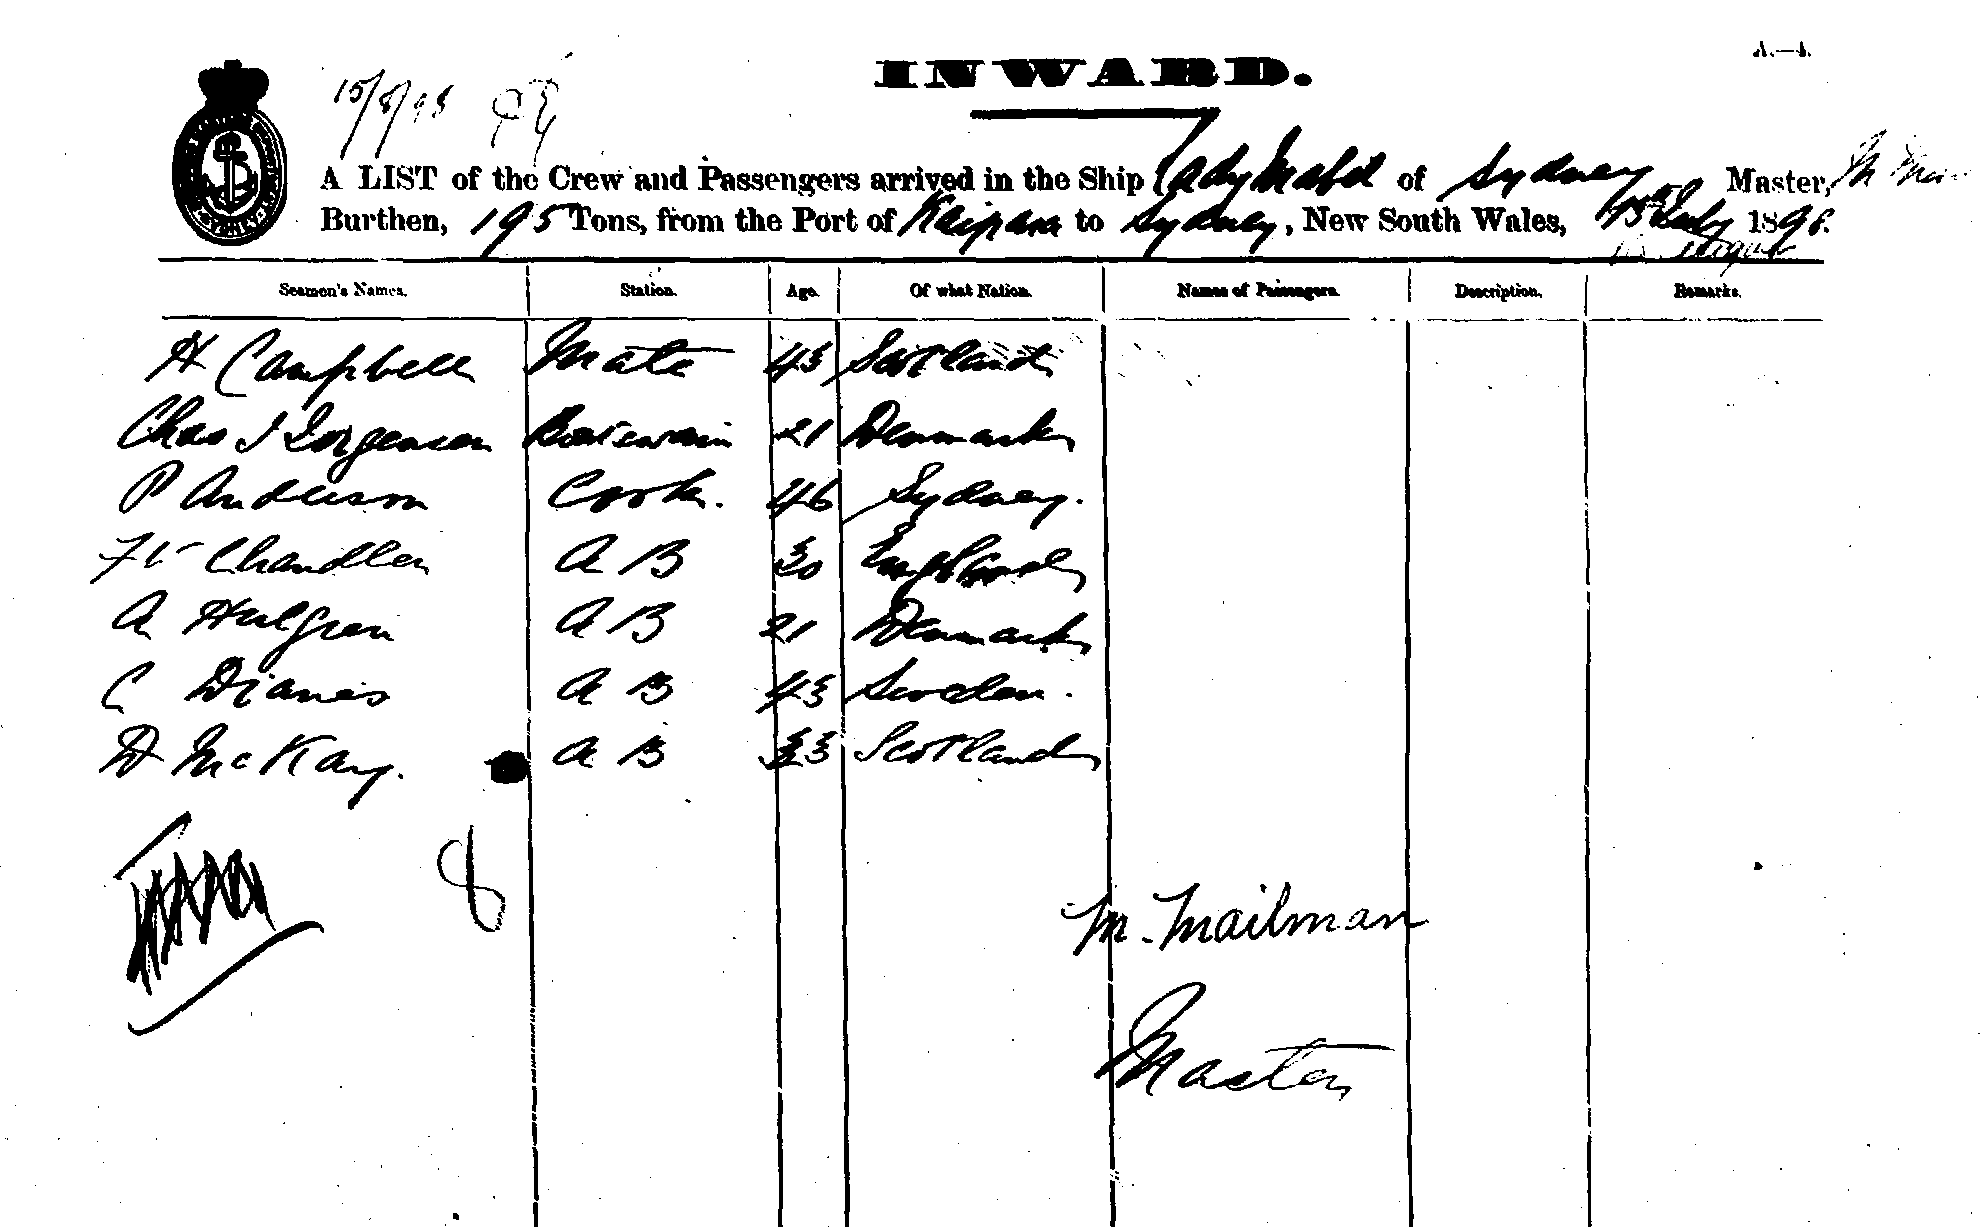 A.—4.
INWARD.
15/8/98
A LIST of the Crew and Passengers arrived in the Ship Lady Mabel of Sydney Master, M
Burthen, 195 Tons, from the Port of Kaipara to Sydney, New South Wales, 1898.
Seamen's Names. Station. Age. Of what Nation. Names of Passengers. Description. Remarks.
H Campbell Mate 43 Scotland
Chas J Jorgensen Boatswain 21 Denmark
P Anderson Cook. 46 Sydney.
Chandler A B 30 England
A Hulgren A B 21 Denmark
C A B 43 Sweden.
D McKay. A B 33 Scotland
8
M. Mailman
Master